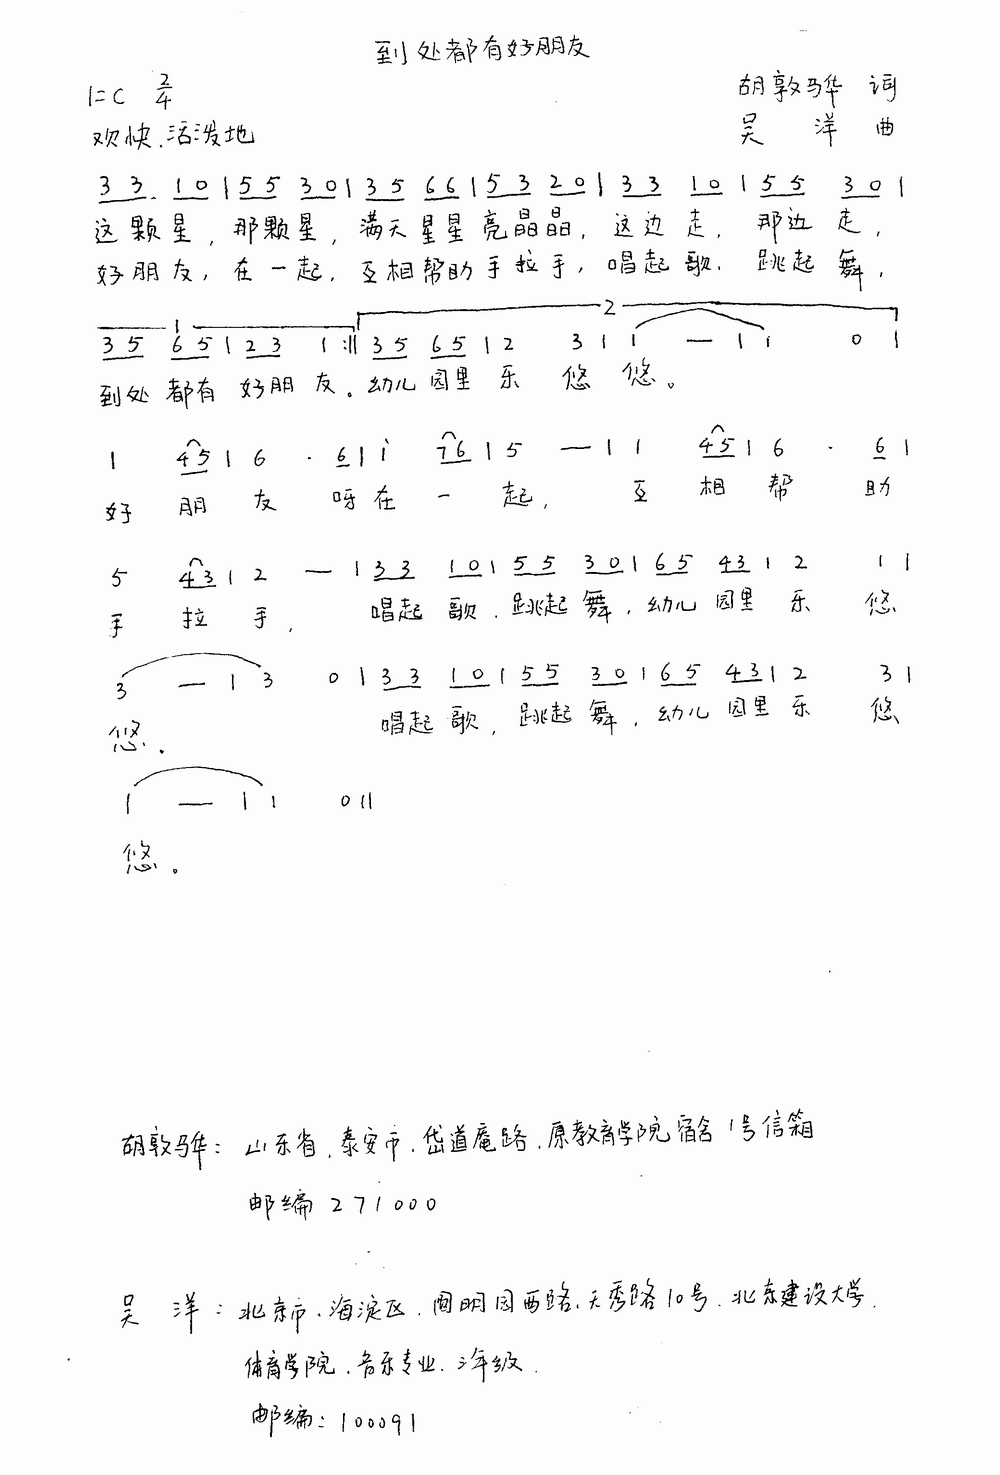 到处都有好朋友
1=C 2/4
胡敦骅 词
欢快、活泼地
吴 洋 曲
3 3. 1 0 | 5 5 3 0 | 3 5 6 6 | 5 3 2 0 | 3 3 1 0 | 5 5 3 0 |
这颗星，那颗星，满天星星亮晶晶，这边走，那边走，
好朋友，在一起，互相帮助手拉手，唱起歌，跳起舞，
1 2
3 5 6 5 | 2 3 1 :|| 3 5 6 5 | 2 3 | i — | i 0 |
到处都有好朋友。幼儿园里乐悠悠。
1 4 5 | 6 . 6 | i 7 6 | 5 — | 1 4 5 | 6 . 6 |
好朋友呀在一起，互相帮助
5 4 3 | 2 — | 3 3 1 0 | 5 5 3 0 | 6 5 4 3 | 2 1 |
手拉手，唱起歌，跳起舞，幼儿园里乐悠
3 — | 3 0 | 3 3 1 0 | 5 5 3 0 | 6 5 4 3 | 2 3 |
悠。唱起歌，跳起舞，幼儿园里乐悠
1 — | 1 0 ||
悠。
胡敦骅：山东省、泰安市、岱道庵路、原教育学院宿舍1号信箱
邮编 271000
吴 洋：北京市、海淀区、圆明园西路、天秀路10号、北京建设大学、
体育学院、音乐专业、三年级、
邮编：100091